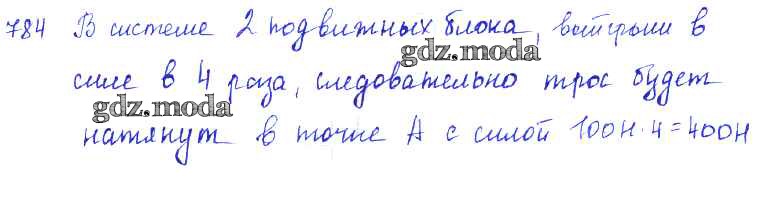 784 В системе 2 подвижных блока, выигрыш в
gdz.moda
силе в 4 раза, следовательно трос будет
gdz.moda
натянут в точке А с силой 100Н·4=400Н